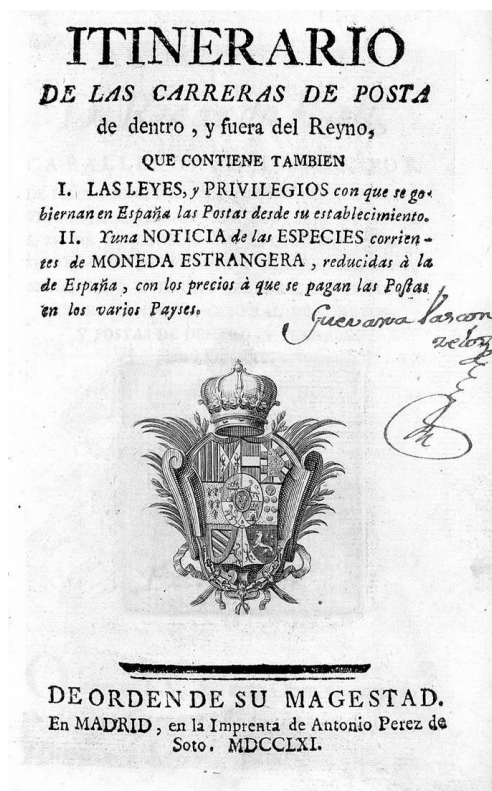 ITINERARIO
DE LAS CARRERAS DE POSTA
de dentro, y fuera del Reyno,
QUE CONTIENE TAMBIEN
I. LAS LEYES, y PRIVILEGIOS con que se go-
biernan en España las Postas desde su establecimiento.
II. Yuna NOTICIA de las ESPECIES corrien-
tes de MONEDA ESTRANGERA, reducidas à la
de España, con los precios à que se pagan las Postas
en los varios Payses.
DE ORDEN DE SU MAGESTAD.
En MADRID, en la Imprenta de Antonio Perez de
Soto. MDCCLXI.